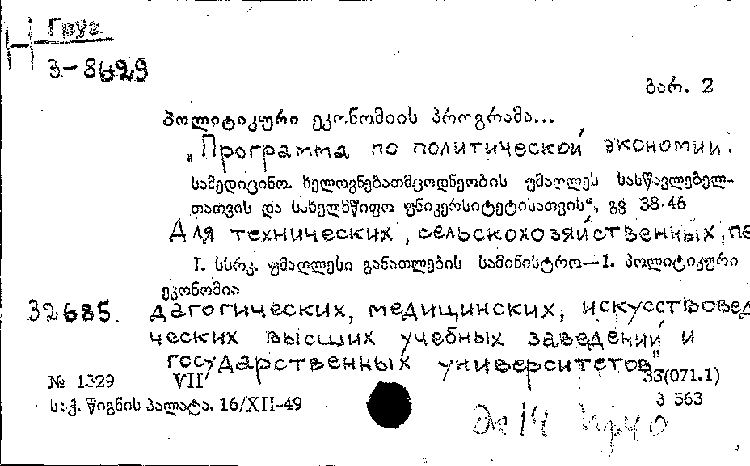 Груз
Н
3-8629
ვარ. 2
პოლიტიკური ეკონომიის პროგრამა...
„Программа по политической экономии.
სამედიცინო. ხელოვნებათმცოდნეობის უმაღლეს სასწავლებელ-
თათვის და სახელმწიფო უნივერსიტეტისათვის“, გვ 38-46
Для технических, сельскохозяйственных, пе
I. სსრკ. უმაღლესი განათლების სამინისტრო—1. პოლიტიკური
ეკონომია
32685. дагогических, медицинских, искусствовед
ческих высших учебных заведений и
государственных университетов"
№ 1329 VII 33(071.1)
საქ. წიგნის პალატა. 16/XII-49 პ 563